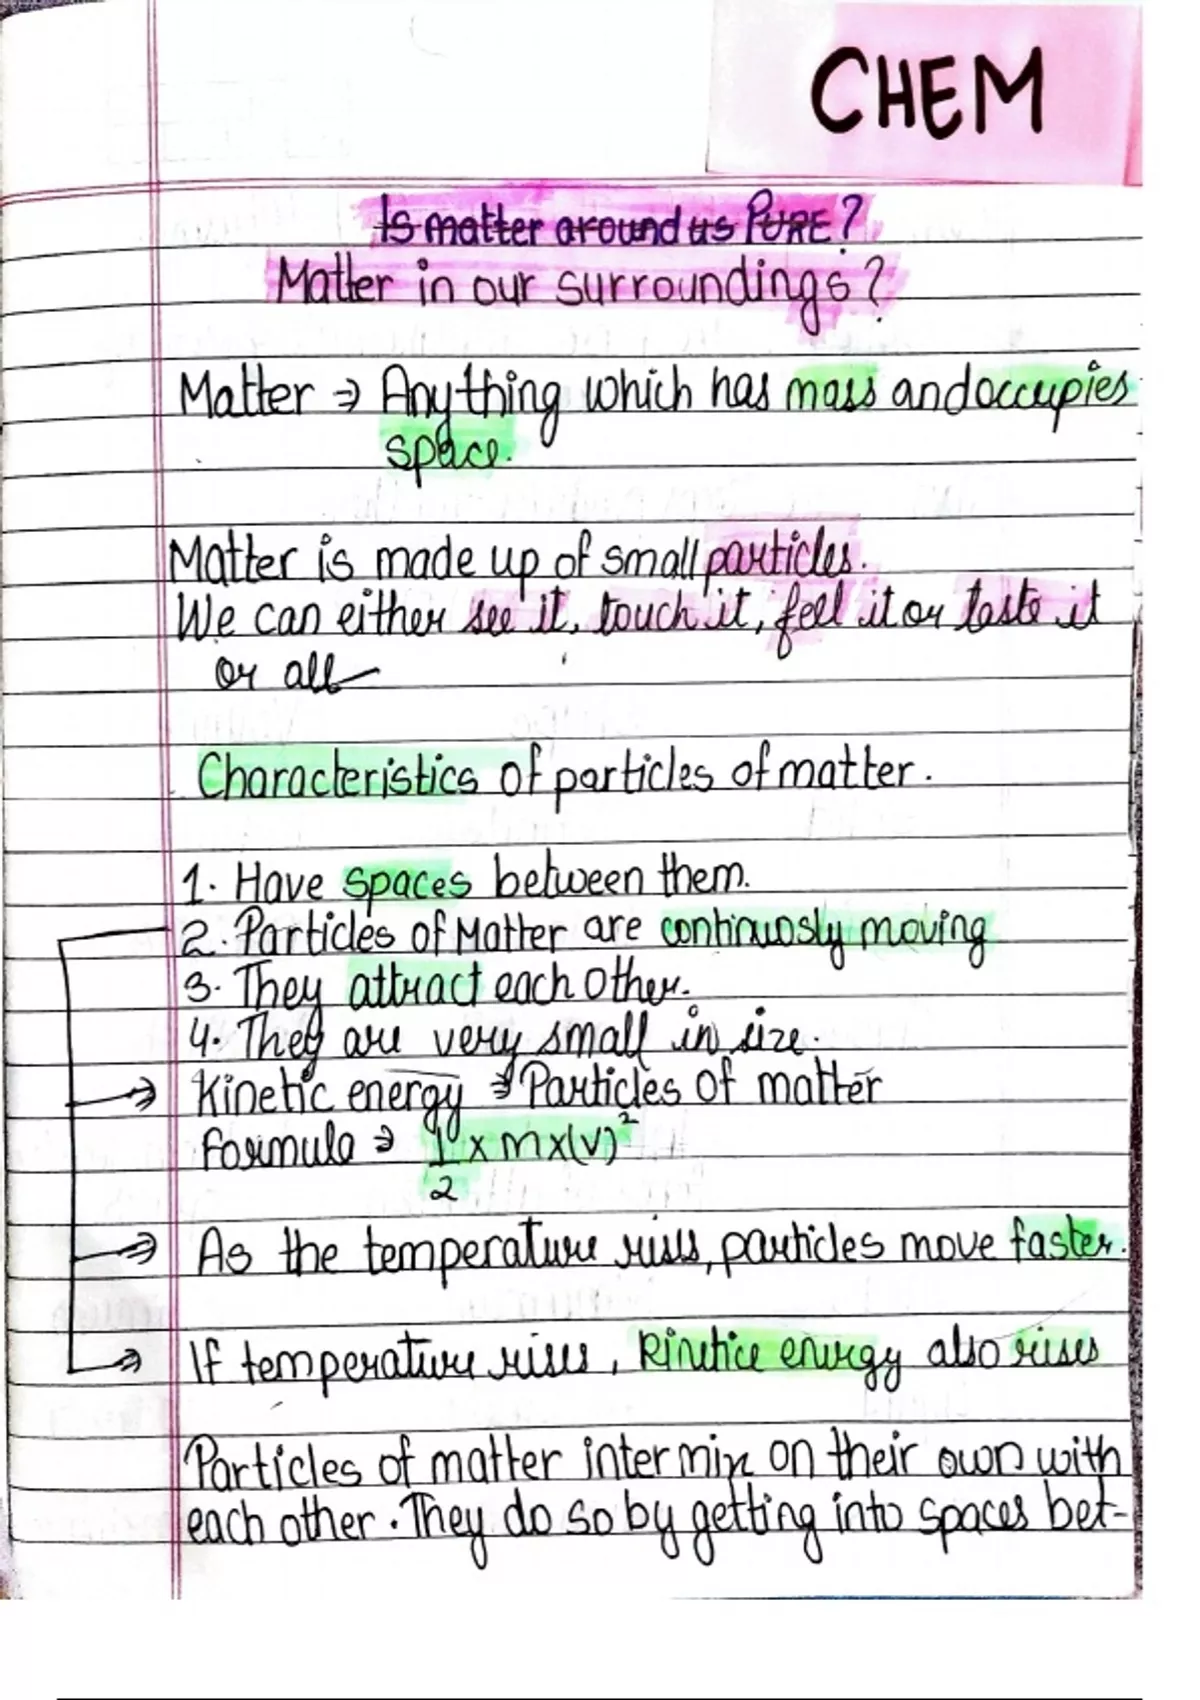 CHEM
Is matter around us PURE?
Matter in our surroundings?
Matter → Anything which has mass and occupies
space.
Matter is made up of small particles.
We can either see it, touch it, feel it or taste it
or all
Characteristics of particles of matter.
1. Have spaces between them.
2. Particles of Matter are continuosly moving
3. They attract each other.
4. They are very small in size.
→ Kinetic energy → Particles of matter
formula → 1/2 x m x (v)²
→ As the temperature rises, particles move faster.
→ If temperature rises, kinetice energy also rises
Particles of matter inter mix on their own with
each other. They do so by getting into spaces bet-